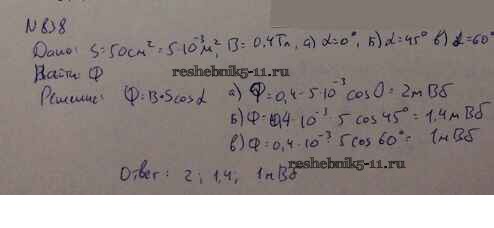 N 838
Дано: S=50см²=5·10⁻³м², B=0,4Тл, а) α=0°, Б) α=45° в) α=60°
Найти Ф
reshebnik5-11.ru
Решение: Ф=B·Scosα а) Ф=0,4·5·10⁻³ cos0=2мВб
б) Ф=0,4·10⁻³·5cos45°=1,4мВб
в) Ф=0,4·10⁻³·5cos60°=1мВб
reshebnik5-11.ru
Ответ: 2; 1,4; 1мВб